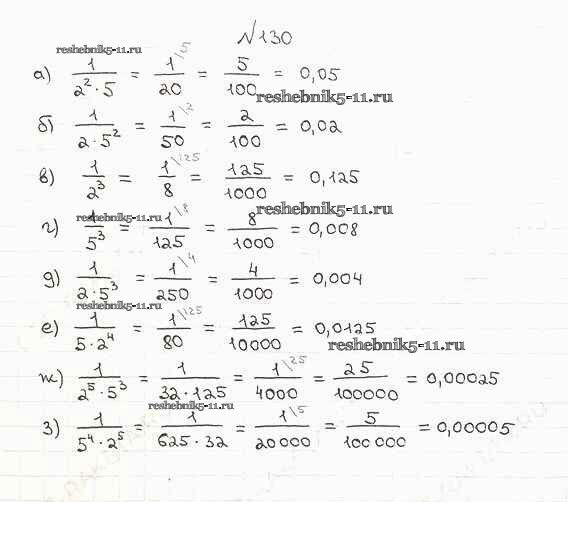 №130
reshebnik5-11.ru
а) 1/(2²·5) = 1\5/20 = 5/100 = 0,05
reshebnik5-11.ru
б) 1/(2·5²) = 1\2/50 = 2/100 = 0,02
в) 1/2³ = 1\125/8 = 125/1000 = 0,125
reshebnik5-11.ru
reshebnik5-11.ru
г) 1/5³ = 1\8/125 = 8/1000 = 0,008
д) 1/(2·5³) = 1\4/250 = 4/1000 = 0,004
reshebnik5-11.ru
е) 1/(5·2⁴) = 1\125/80 = 125/10000 = 0,0125
reshebnik5-11.ru
ж) 1/(2⁵·5³) = 1/(32·125) = 1\25/4000 = 25/100000 = 0,00025
reshebnik5-11.ru
з) 1/(5⁴·2⁵) = 1/(625·32) = 1\5/20000 = 5/100000 = 0,00005